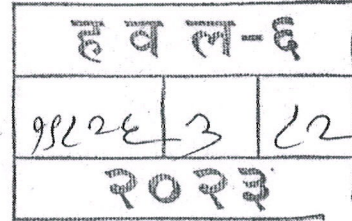 ह व ल-६
१५८२६ ३ ८२
२०२३